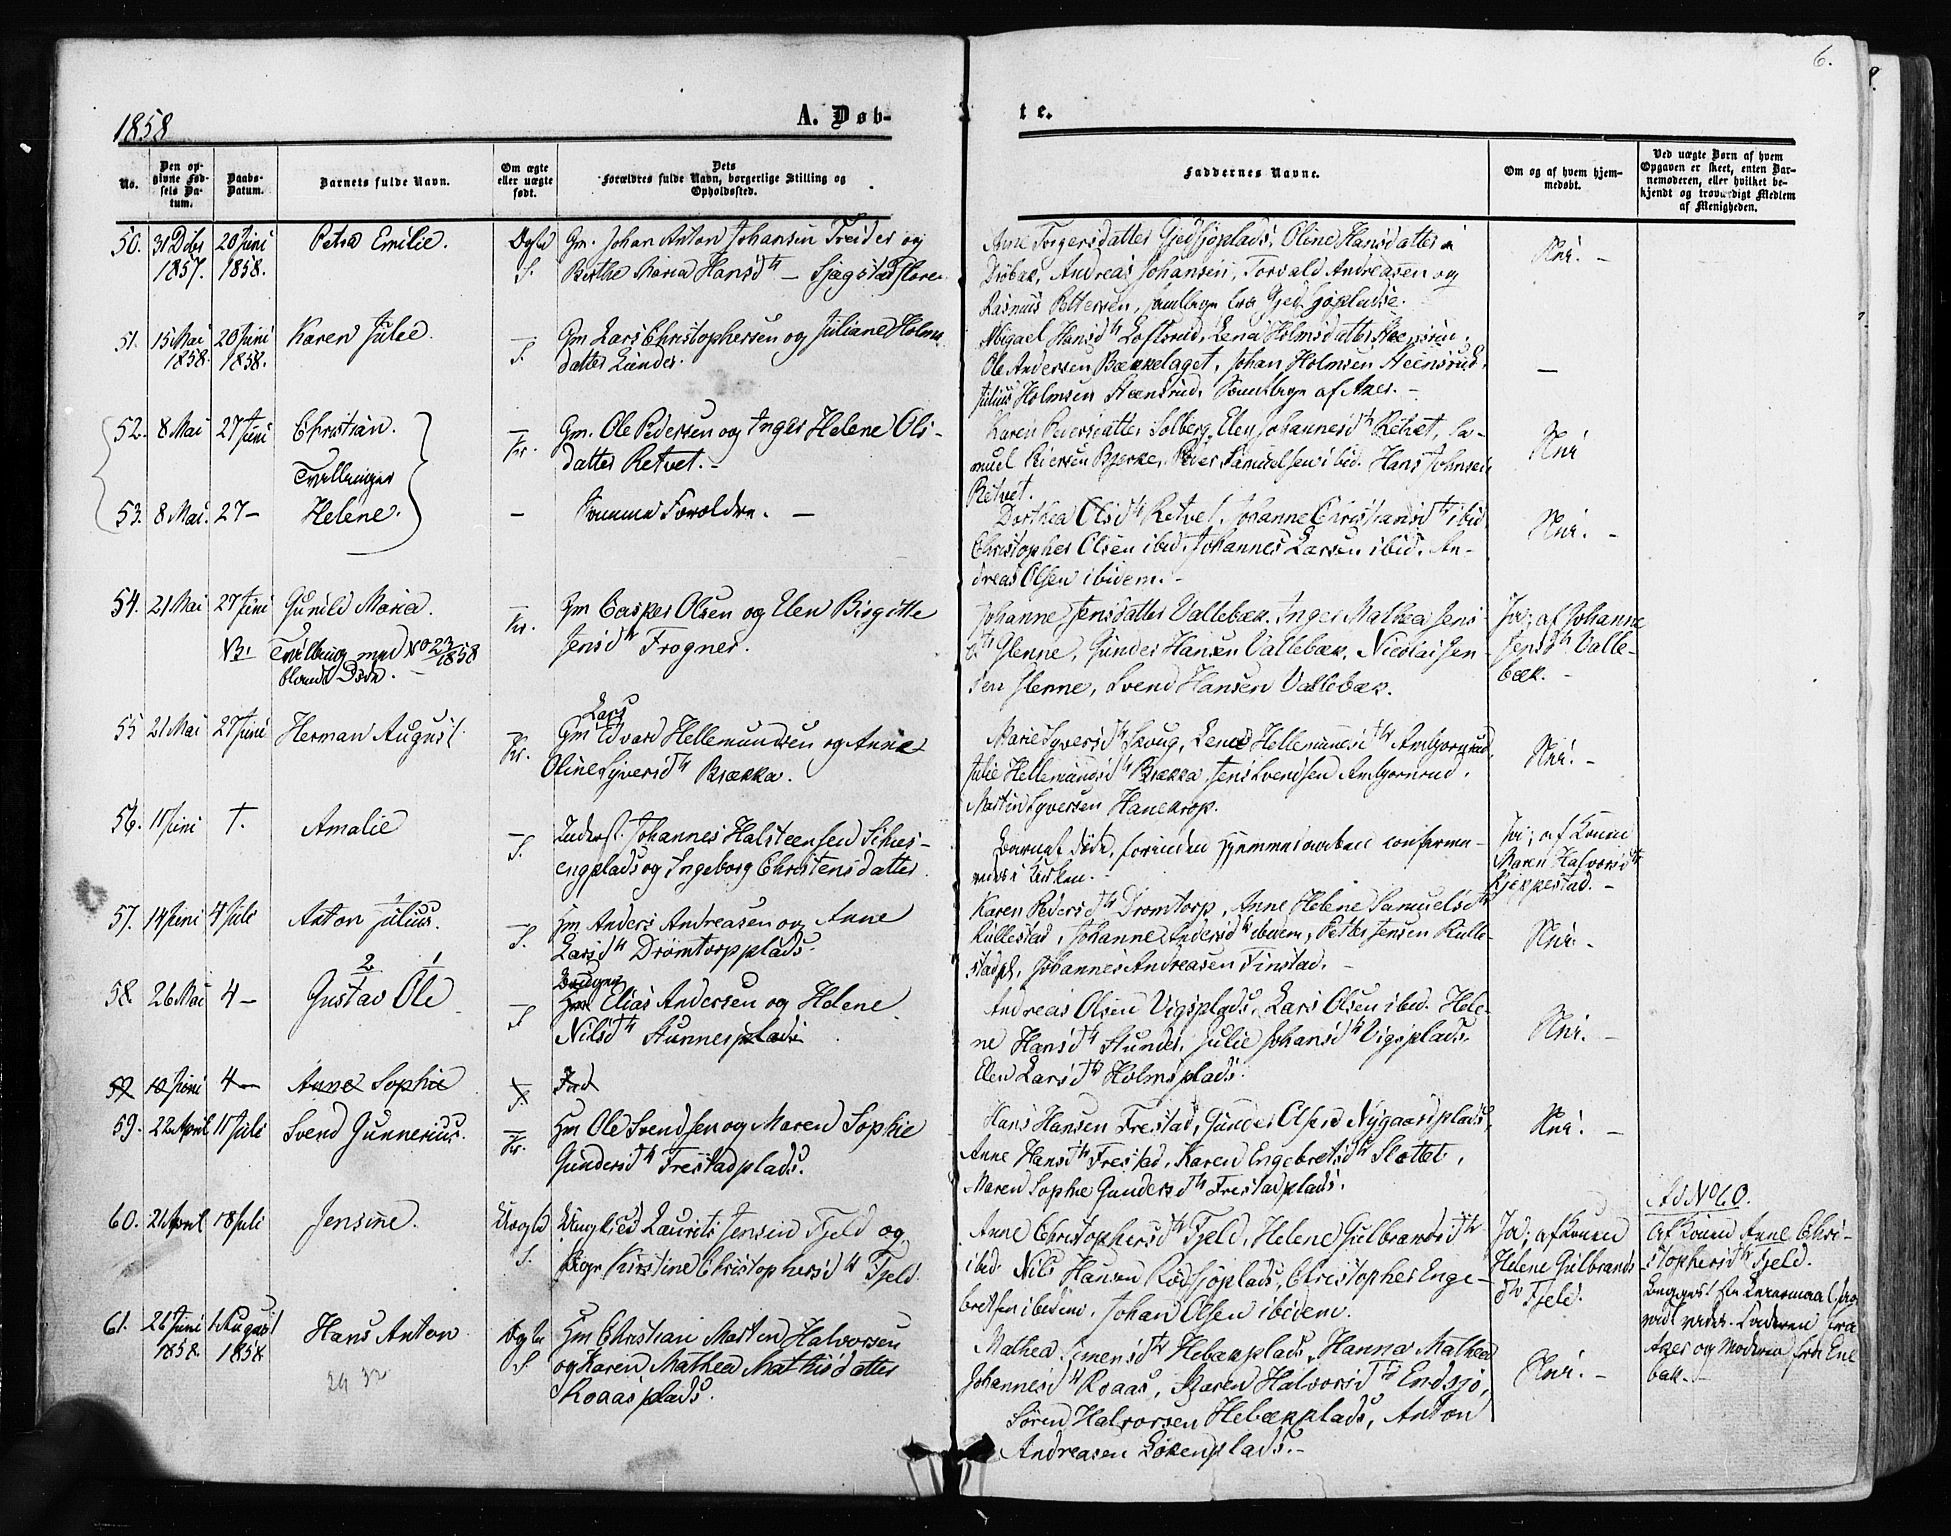 6.
1858
A. Døb-
te.
No.
Den op-
givne Fød-
sels Da-
tum.
Daabs-
Datum.
Barnets fulde Navn.
Om ægte
eller uægte
født.
Dets
Forældres fulde Navn, borgerlige Stilling og
Opholdssted.
Faddernes Navne.
Om og af hvem hjem-
medøbt.
Ved uægte Børn af hvem
Opgaven er skeet, enten Bar-
nemoderen, eller hvilket be-
kjendt og troværdigt Medlem
af Menigheden.
50. 31 Dcbr 20 Juni Petra Emilie. Ægte Gm. Johan Anton Johansen Treider og
1857. 1858. S. Berthe Maria Hansd tr –
Anne Torgersdatter Gjedsjøplads, Oline Hansdatter i
Drøbak, Andreas Johansen, Torvald Andreasen og
Rasmus Pettersen, samtlige fra Gjedsjøpladse.
Nei. –
51. 15 Mai 20 Juni Karen Julie. – Gm Lars Christophersen og Juliane Holms
1858. 1858. S. datter Lunder.
Abigael Hansd tr Loftsrud, Lena Holmsdatter
Ole Andersen Bækkelaget, Johan Holmsen
Julius Holmsen Samtlige af Aaes. –
–
52. 8 Mai 27 Juni Christian. – Gm. Ole Pedersen og Inger Helene Ols-
Kr. datter Retvet. –
Tvillinger
Karen Peiersdatter Solberg, Elen Johannesd tr Retvet, Sa-
muel Peiersen Bjerke, Peier Samuelsen ibid. Hans Johnsen
Retvet.
Nei
53. 8 Mai. 27 – Helene. – Samme Forældre. –
Dorthea Olsd tr Retvet, Johanne Christiansd tr ibid
Christopher Olsen ibid. Johannes Larsen ibid. An-
dreas Olsen ibidem. –
Nei. –
54. 21 Mai 27 Juni Gunild Maria. – Gm Casper Olsen og Elen Birgitte
NB! Tvilling med No 23/1858 Kr. Jensd tr Frogner.
blandt Døde. –
Johanne Jensdatter Vallebæk. Inger Mathea Jens-
d tr Glenne, Gunder Hansen Vallebæk. Nicolai Jen-
sen Glenne, Svend Hansen Vallebæk.
Ja; af Johanne
Jensd tr Valle-
bæk. –
Lars
55 21 Mai 27 Juni Herman August – Gm Edvard Hellemundsen og Anne
Kr. Oline Syversd tr Brækka.
Marie Syversd tr Skoug, Lene Hellemunsd tr
Julie Hellemundsd tr Brækka, Jens Svendsen
Martin Syversen Hanekrop.
Nei. –
56. 11 Juni †. Amalie – Inderst. Johannes Halsteensen
S. engplads og Ingeborg Christensdatter
Barnet døde, forinden Hjemmedaaben confirme-
redes i Kirken. –
Ja; af Konen
Maren Halvorsd tr
Kjeppestad. –
57. 14 Juni 4 Juli Anton Julius. – Hm Anders Andreasen og Anne
S. Larsd tr Drømtorpplads.
Karen Pedersd tr Drømtorp, Anne Helene Samuelsd tr
Rullestad, Johanne Andersd tr ibidem, Petter Jensen Rulle-
stadpl, Johannes Andreasen Finstad. –
Nei. –
2 1
58. 26 Mai 4 – Gustav Ole – Hm Elias Andersen og Helene
S Nilsd tr Stunnerplads.
Andreas Olsen Vigsplads, Lars Olsen ibid. Hele-
ne Hansd tr Stunder, Julie Johansd tr Vigsplads.
Elen Larsd tr Holmsplads.
Nei. –
59 10 Juni 4 – Anne Sophie
59. 22 April 11 Juli Svend Gunnerius. – Hm Ole Svendsen og Maren Sophie
Kr. Gundersd tr Frestadplads.
Hans Hansen Frestad, Gunder Olsen Nygaardplads,
Anne Hansd tr Frestad, Karen Engebretsd tr Slottet,
Maren Sophie Gundersd tr Frestadplads.
Nei. –
60. 21 April 18 Juli Jensine. Uægte Ungkarl Laurits Jensen Fjeld og
S. Pige Kirstine Christophersd tr Fjeld.
Anne Christophersd tr Fjeld, Helene Gulbrandsd tr
ibid. Nils Hansen Rødsjøplads, Christopher Enge-
bretsen ibidem. Johan Olsen ibidem.
Ja, af Konen
Helene Gulbrands-
d tr Fjeld.
Ad No 60.
Af Konen Anne Chri-
stophersd tr Fjeld.
Begges 1ste Leiermaal
vides. Faderen fra
Aaes og Moderen fra Ene
bak. –
61. 26 Juni 1 August Hans Anton Ægte Hm Christian Morten Halvorsen
1858. 1858 S og Karen Mathea Mathisdatter
Roaasplads.
29 32
Mathea Simensd tr Hebækplads, Hanna Mathea
Johannesd tr Roaas, Karen Halvorsd tr Endsjø,
Søren Halvorsen Hebækplads, Anton
Andreasen Bøkenplads. –
Nei. –